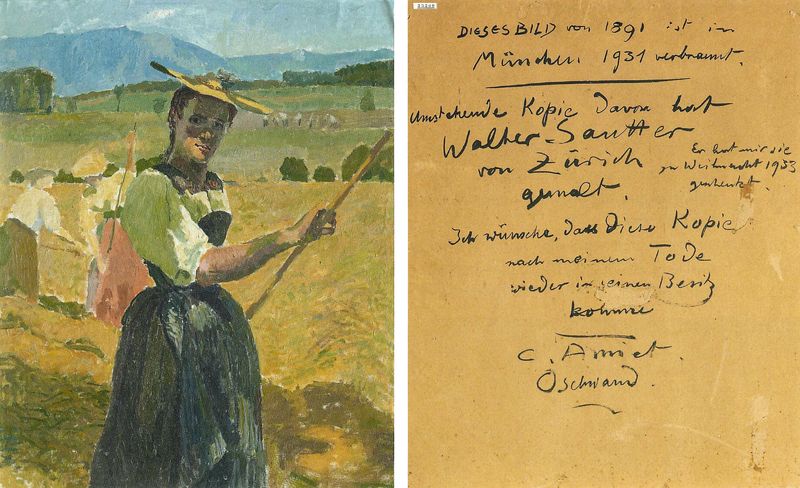 23248
DIESES BILD von 1891 ist in
München 1931 verbrannt.
Umstehende Kopie davon hat
Walter Sautter
von Zürich
gemalt.
Er hat mir sie
zu Weihnacht 1933
geschenkt.
Ich wünsche, dass diese Kopie
nach meinem Tode
wieder in seinen Besitz
komme
C. Amiet.
Oschwand.